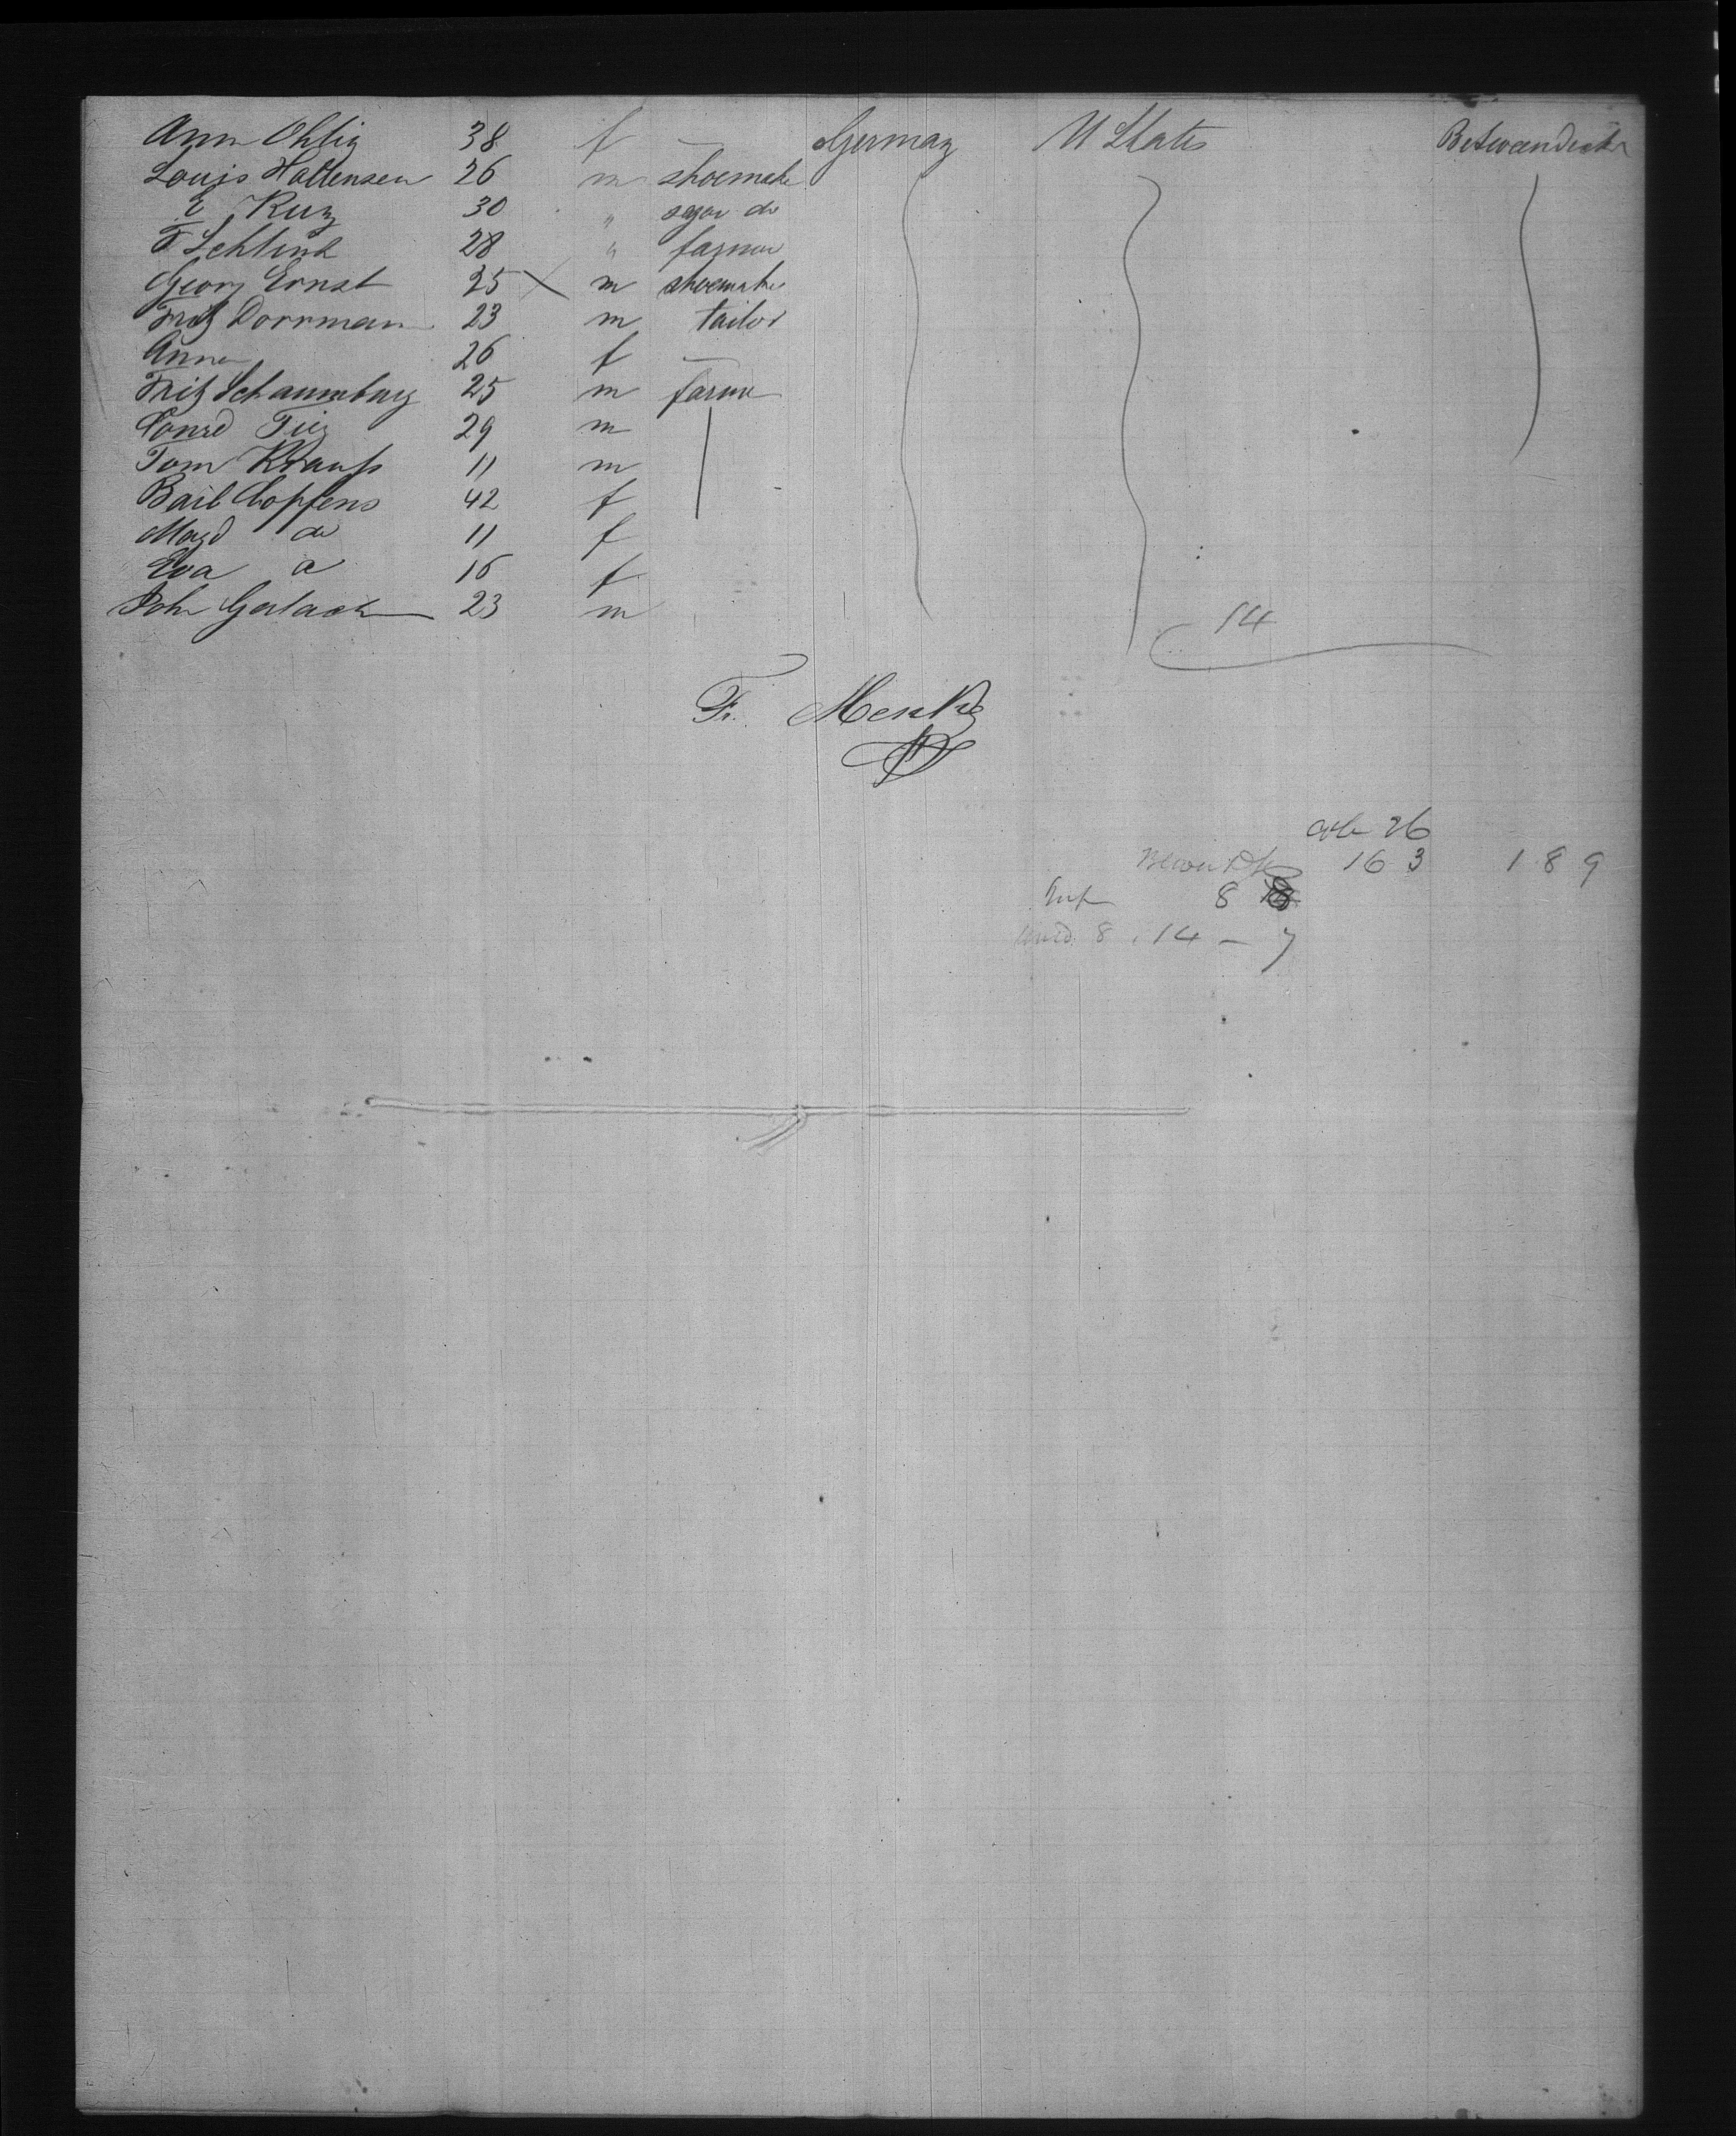 Ann Ohlig 38 f — Germany U States Between decks
Louis Hattensen 26 m shoemake
E Kunz 30 " segar do
F Schlink 28 " farmer
Georg Ernst 25 X m shoemake
Fritz Dorrmann 23 m tailor
Anna 26 f —
Fritz Schaumburg 25 m farme
Conrd Tiez 29 m
Tom Krauss 11 m
Barb Copfens 42 f
Magd do 11 f
Eva do 16 f
John Gerlach 23 m
14
Fr. Menke
Cab 26
163 189
Inf 8
8 . 14 — 7